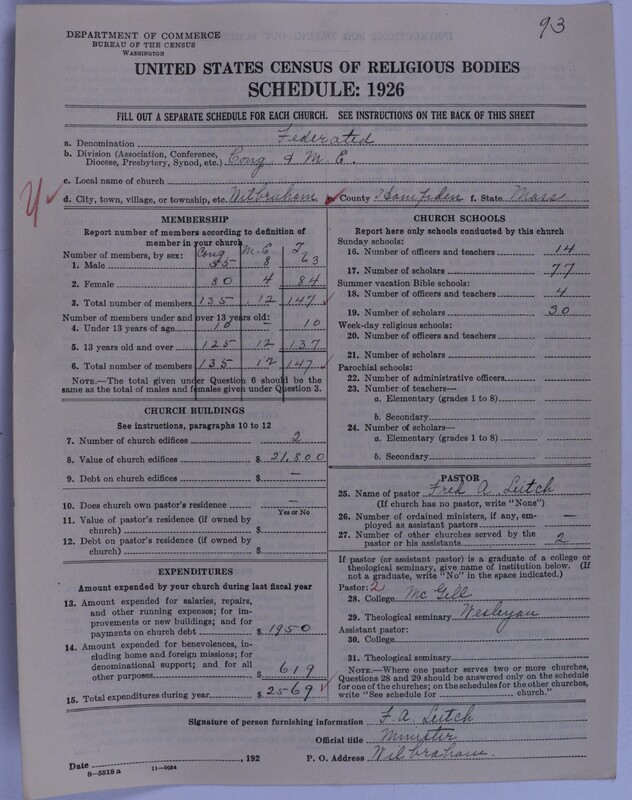 93
DEPARTMENT OF COMMERCE
BUREAU OF THE CENSUS
WASHINGTON
UNITED STATES CENSUS OF RELIGIOUS BODIES
SCHEDULE: 1926
FILL OUT A SEPARATE SCHEDULE FOR EACH CHURCH. SEE INSTRUCTIONS ON THE BACK OF THIS SHEET
a. Denomination Federated
b. Division (Association, Conference, Diocese, Presbytery, Synod, etc.) Cong. & M. E.
c. Local name of church
d. City, town, village, or township, etc. Wilbraham e. County Hampden f. State Mass
MEMBERSHIP
Report number of members according to definition of
member in your church
Number of members, by sex: Cong M. E. T
1. Male 55 8 63
2. Female 80 4 84
3. Total number of members 135 12 147
Number of members under and over 13 years old:
4. Under 13 years of age 10 – 10
5. 13 years old and over 125 12 137
6. Total number of members 135 12 147
NOTE.—The total given under Question 6 should be the
same as the total of males and females given under Question 3.
CHURCH BUILDINGS
See instructions, paragraphs 10 to 12
7. Number of church edifices 2
8. Value of church edifices $ 21,800
9. Debt on church edifices $ —
10. Does church own pastor's residence —
Yes or No
11. Value of pastor's residence (if owned by
church) $
12. Debt on pastor's residence (if owned by
church) $
EXPENDITURES
Amount expended by your church during last fiscal year
13. Amount expended for salaries, repairs,
and other running expenses; for im-
provements or new buildings; and for
payments on church debt $ 1950
14. Amount expended for benevolences, in-
cluding home and foreign missions; for
denominational support; and for all
other purposes $ 619
15. Total expenditures during year $ 2569
CHURCH SCHOOLS
Report here only schools conducted by this church
Sunday schools:
16. Number of officers and teachers 14
17. Number of scholars 77
Summer vacation Bible schools:
18. Number of officers and teachers 4
19. Number of scholars 30
Week-day religious schools:
20. Number of officers and teachers
21. Number of scholars
Parochial schools:
22. Number of administrative officers
23. Number of teachers—
a. Elementary (grades 1 to 8)
b. Secondary
24. Number of scholars—
a. Elementary (grades 1 to 8)
b. Secondary
PASTOR
25. Name of pastor Fred A. Leitch
(If church has no pastor, write "None")
26. Number of ordained ministers, if any, em-
ployed as assistant pastors —
27. Number of other churches served by the
pastor or his assistants 2
If pastor (or assistant pastor) is a graduate of a college or
theological seminary, give name of institution below. (If
not a graduate, write "No" in the space indicated.)
Pastor: 2
28. College Mc Gill
29. Theological seminary Wesleyan
Assistant pastor:
30. College
31. Theological seminary
NOTE.—Where one pastor serves two or more churches,
Questions 28 and 29 should be answered only on the schedule
for one of the churches; on the schedules for the other churches,
write "See schedule for church."
Signature of person furnishing information F. A. Leitch
Official title Minister
Date , 192 P. O. Address Wilbraham.
8—5518a 11—9034